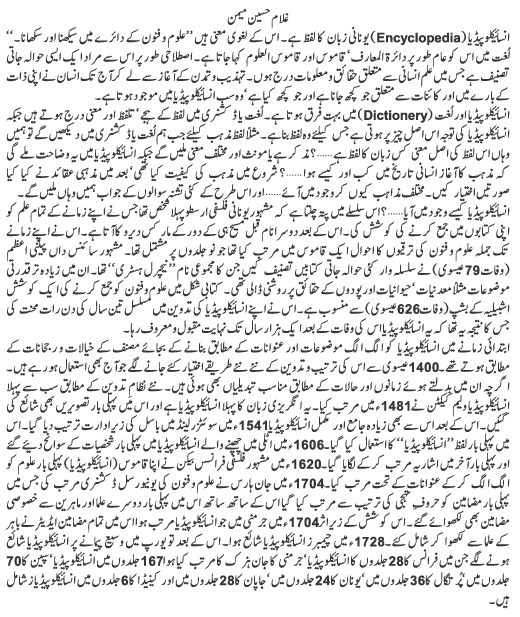 غلام حسین میمن
انسائیکلوپیڈیا (Encyclopedia) یونانی زبان کا لفظ ہے۔ اس کے لغوی معنی ہیں ’’علوم و فنون کے دائرے میں سیکھنا اور سکھانا۔‘‘
لغت میں اس کو عام طور پر دائرۃ المعارف، قاموس اور قاموس العلوم کہا جاتا ہے۔ اصطلاحی طور پر اس سے مراد ایک ایسی حوالہ جاتی
تصنیف ہے جس میں علم انسانی سے متعلق حقائق و معلومات درج ہوں۔ تہذیب و تمدن کے آغاز سے لے کر آج تک انسان نے اپنی ذات
کے بارے میں اور کائنات سے متعلق جو کچھ جانا ہے اور جو کچھ کیا ہے، وہ سب انسائیکلوپیڈیا میں موجود ہوتا ہے۔
انسائیکلوپیڈیا اور لغت (Dictionery) میں بہت فرق ہوتا ہے۔ لغت یا ڈکشنری میں لفظ کے ہجے، تلفظ اور معنی درج ہوتے ہیں جبکہ
انسائیکلوپیڈیا کی توجہ اس اصل چیز پر ہوتی ہے جس کیلئے وہ لفظ بنا ہے۔ مثلاً لفظ مذہب کیلئے جب ہم لغت یا ڈکشنری میں دیکھیں گے تو ہمیں
وہاں اس لفظ کی اصل یعنی کس زبان کا لفظ ہے......؟ مذکر ہے یا مونث اور مختلف معنی ملیں گے جبکہ انسائیکلوپیڈیا میں یہ وضاحت ملے گی
کہ مذہب کا آغاز انسانی تاریخ میں کب اور کیسے ہوا......؟ شروع میں مذہب کی کیفیت کیا تھی، بعد میں مذہبی عقائد نے کیا کیا
صورتیں اختیار کیں۔ مختلف مذاہب کیوں کر وجود میں آئے...... اور اس طرح کے کئی تشنہ سوالوں کے جواب ہمیں وہاں ملیں گے۔
انسائیکلوپیڈیا کیسے وجود میں آیا......؟ اس سلسلے میں پتہ چلتا ہے کہ مشہور یونانی فلسفی ارسطو پہلا شخص تھا جس نے اپنے زمانے کے تمام علم کو
اپنی کتابوں میں جمع کرنے کی کوشش کی۔ اس کے بعد دوسرا نام قبل مسیح ہی کے دور کے مارکس ویرو کا آتا ہے۔ اس نے اپنے زمانے
تک جملہ علوم و فنون کی ترقیوں کا احوال ایک قاموس میں مرتب کیا تھا جو نو جلدوں پر مشتمل تھا۔ مشہور سائنس داں پلینی اعظم
(وفات 79 عیسوی) نے سلسلہ وار کئی حوالہ جاتی کتابیں تصنیف کیں جن کا مجموعی نام ’’نیچرل ہسٹری‘‘ تھا۔ ان میں زیادہ تر قدرتی
موضوعات مثلاً معدنیات، حیوانیات اور پودوں کے حقائق پر روشنی ڈالی تھی۔ کتابی شکل میں علوم و فنون کو جمع کرنے کی ایک کوشش
اشبیلیہ کے بشپ (وفات 626 عیسوی) سے منسوب ہے۔ اس نے اپنے انسائیکلوپیڈیا کی تدوین میں مسلسل تین سال کی دن رات محنت کی
جس کا نتیجہ یہ تھا کہ یہ انسائیکلوپیڈیا اس کی وفات کے بعد ایک ہزار سال تک نہایت مقبول و معروف رہا۔
ابتدائی زمانے میں انسائیکلوپیڈیا کو الگ الگ موضوعات اور عنوانات کے مطابق بنانے کے بجائے مصنف کے خیالات و رجحانات کے
مطابق ہوتے تھے۔ 1400 عیسوی سے اس کی ترتیب و تدوین کے نئے نئے طریقے اختیار کئے جانے لگے جو آج بھی استعمال ہو رہے ہیں۔
اگرچہ ان میں بدلتے ہوئے زمانوں اور حالات کے مطابق مناسب تبدیلیاں بھی ہوئی ہیں۔ نئے نظام تدوین کے مطابق سب سے پہلا
انسائیکلوپیڈیا ولیم کیکسٹن نے 1481ء میں مرتب کیا۔ یہ انگریزی زبان کا پہلا انسائیکلوپیڈیا ہے اور اس میں پہلی بار تصویریں بھی شائع کی
گئیں۔ اس کے بعد اس سے بھی زیادہ جامع اور مکمل انسائیکلوپیڈیا 1541ء میں سوئٹزرلینڈ میں باسل کی زیر ادارت ترتیب دیا گیا۔ اس
میں پہلی بار لفظ ’’انسائیکلوپیڈیا‘‘ کا استعمال کیا گیا۔ 1606ء میں اٹلی میں چھپنے والے انسائیکلوپیڈیا میں پہلی بار شخصیات کے سوانح دیئے گئے
اور پہلی بار آخر میں اشاریہ مرتب کر کے لگایا گیا۔ 1620ء میں مشہور فلسفی فرانسس بیکن نے اپنا قاموس (انسائیکلوپیڈیا) پہلی بار علوم کو
الگ الگ کر کے عنوانات کے تحت مرتب کیا۔ 1704ء میں جان ہارس نے علوم و فنون کی یونیورسل ڈکشنری مرتب کی جس میں
پہلی بار مضامین کو حروف تہجی کی ترتیب سے مرتب کیا گیا اس کے ساتھ ساتھ اس میں پہلی بار دوسرے علماء اور ماہرین سے خصوصی
مضامین بھی لکھوائے گئے۔ اس کوشش کے زیر اثر 1704ء میں جرمنی میں جو انسائیکلوپیڈیا مرتب ہوا اس میں تمام مضامین ایڈیٹر نے باہر
کے علماء سے لکھوا کر شامل کئے۔ 1728ء میں چیمبرز انسائیکلوپیڈیا شائع ہوا۔ اس کے بعد تو یورپ میں وسیع پیمانے پر انسائیکلوپیڈیا شائع
ہونے لگے جن میں فرانس کا 28 جلدوں کا انسائیکلوپیڈیا، جرمنی کا جان ہزک کا مرتب کیا ہوا 167 جلدوں میں انسائیکلوپیڈیا، سپین کا 70
جلدوں میں پُرتگال کا 36 جلدوں میں، یونان کا 24 جلدوں میں، جاپان کا 28 جلدوں میں اور کینیڈا کا 6 جلدوں میں انسائیکلوپیڈیاز شامل
ہیں۔